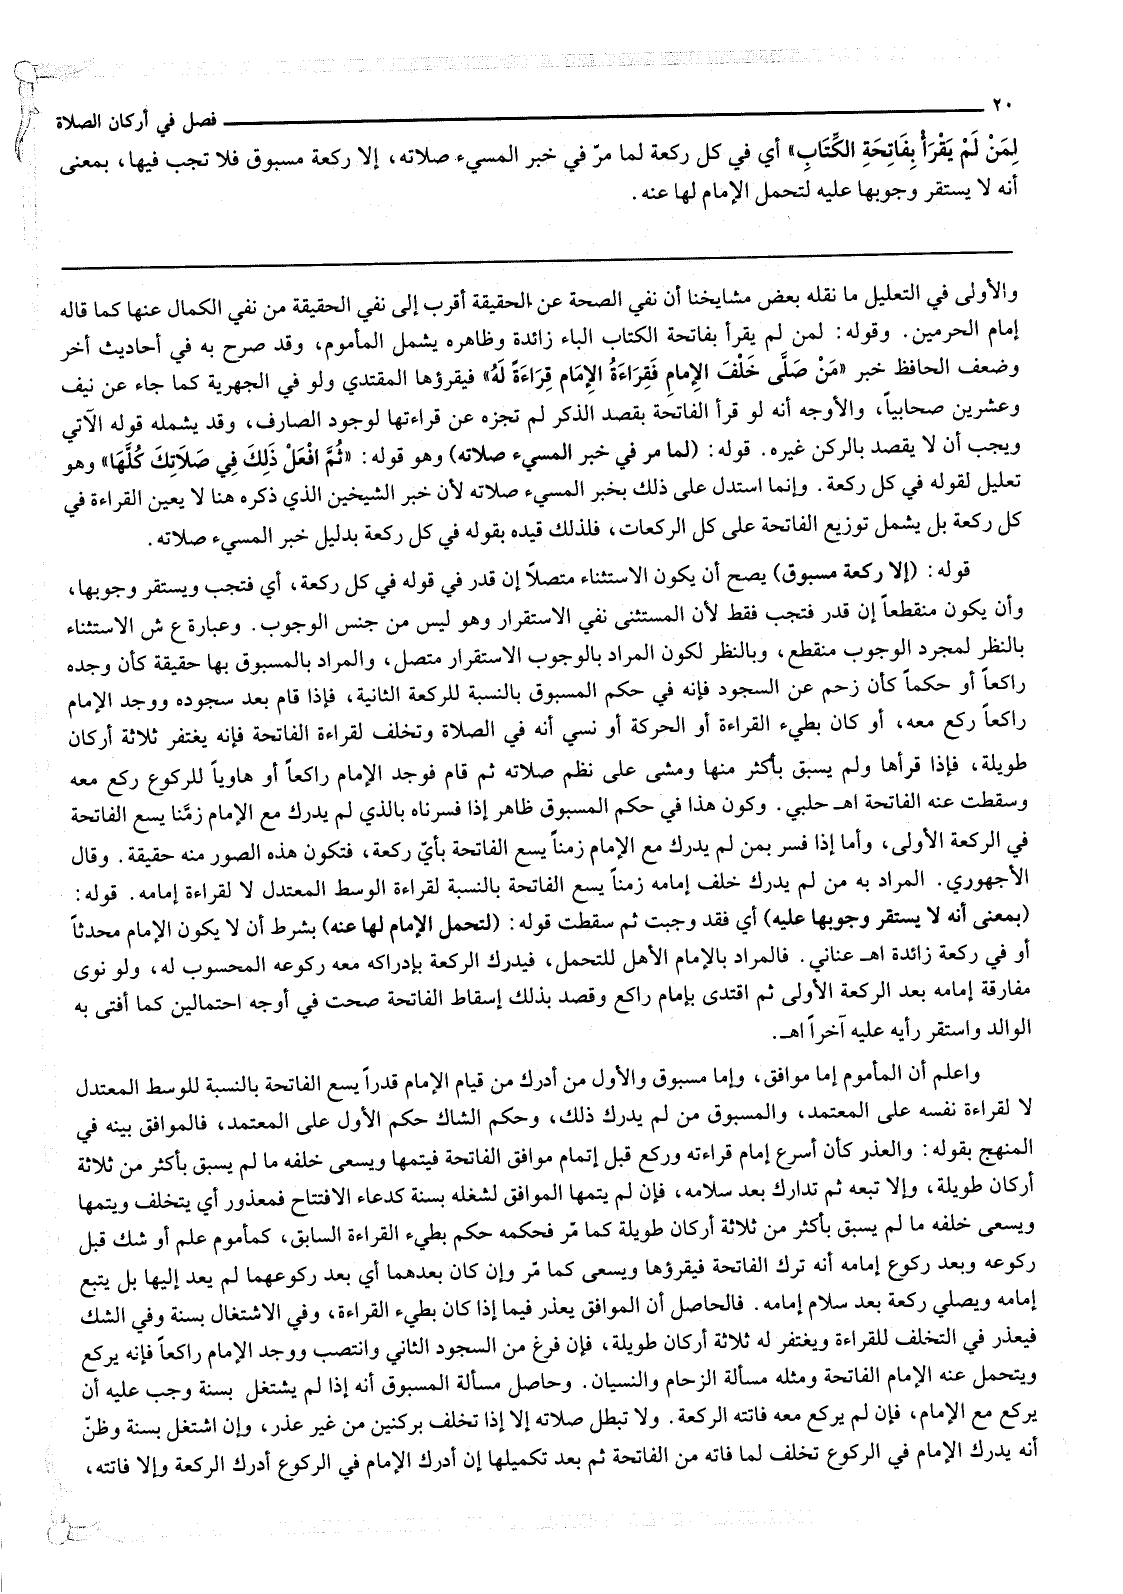 ٢٠ فصل في أركان الصلاة
لِمَنْ لَمْ يَقْرَأْ بِفَاتِحَةِ الكِّتَابِ» أي في كل ركعة لما مرّ في خبر المسيء صلاته، إلا ركعة مسبوق فلا تجب فيها، بمعنى
أنه لا يستقر وجوبها عليه لتحمل الإمام لها عنه.
والأولى في التعليل ما نقله بعض مشايخنا أن نفي الصحة عن الحقيقة أقرب إلى نفي الحقيقة من نفي الكمال عنها كما قاله
إمام الحرمين. وقوله: لمن لم يقرأ بفاتحة الكتاب الباء زائدة وظاهره يشمل المأموم، وقد صرح به في أحاديث أخر
وضعف الحافظ خبر «مَنْ صَلَّى خَلْفَ الإِمامِ فَقِرَاءَةُ الإِمَامِ قِرَاءَةٌ لَهُ» فيقرؤها المقتدي ولو في الجهرية كما جاء عن نيف
وعشرين صحابياً، والأوجه أنه لو قرأ الفاتحة بقصد الذكر لم تجزه عن قراءتها لوجود الصارف، وقد يشمله قوله الآتي
ويجب أن لا يقصد بالركن غيره. قوله: (لما مر في خبر المسيء صلاته) وهو قوله: «ثُمَّ افْعَلْ ذَلِكَ فِي صَلَاتِكَ كُلَّهَا» وهو
تعليل لقوله في كل ركعة. وإنما استدل على ذلك بخبر المسيء صلاته لأن خبر الشيخين الذي ذكره هنا لا يعين القراءة في
كل ركعة بل يشمل توزيع الفاتحة على كل الركعات، فلذلك قيده بقوله في كل ركعة بدليل خبر المسيء صلاته.
قوله: (إلا ركعة مسبوق) يصح أن يكون الاستثناء متصلاً إن قدر في قوله في كل ركعة، أي فتجب ويستقر وجوبها،
وأن يكون منقطعاً إن قدر فتجب فقط لأن المستثنى نفي الاستقرار وهو ليس من جنس الوجوب. وعبارة ع ش الاستثناء
بالنظر لمجرد الوجوب منقطع، وبالنظر لكون المراد بالوجوب الاستقرار متصل، والمراد بالمسبوق بها حقيقة كأن وجده
راكعاً أو حكماً كأن زحم عن السجود فإنه في حكم المسبوق بالنسبة للركعة الثانية، فإذا قام بعد سجوده ووجد الإمام
راكعاً ركع معه، أو كان بطيء القراءة أو الحركة أو نسي أنه في الصلاة وتخلف لقراءة الفاتحة فإنه يغتفر ثلاثة أركان
طويلة، فإذا قرأها ولم يسبق بأكثر منها ومشى على نظم صلاته ثم قام فوجد الإمام راكعاً أو هاوياً للركوع ركع معه
وسقطت عنه الفاتحة اهـ حلبي. وكون هذا في حكم المسبوق ظاهر إذا فسرناه بالذي لم يدرك مع الإمام زمَّنا يسع الفاتحة
في الركعة الأولى، وأما إذا فسر بمن لم يدرك مع الإمام زمناً يسع الفاتحة بأيّ ركعة، فتكون هذه الصور منه حقيقة. وقال
الأجهوري. المراد به من لم يدرك خلف إمامه زمناً يسع الفاتحة بالنسبة لقراءة الوسط المعتدل لا لقراءة إمامه. قوله:
(بمعنى أنه لا يستقر وجوبها عليه) أي فقد وجبت ثم سقطت قوله: (لتحمل الإمام لها عنه) بشرط أن لا يكون الإمام محدثاً
أو في ركعة زائدة اهـ عناني. فالمراد بالإمام الأهل للتحمل، فيدرك الركعة بإدراكه معه ركوعه المحسوب له، ولو نوى
مفارقة إمامه بعد الركعة الأولى ثم اقتدى بإمام راكع وقصد بذلك إسقاط الفاتحة صحت في أوجه احتمالين كما أفتى به
الوالد واستقر رأيه عليه آخراً اهـ.
واعلم أن المأموم إما موافق، وإما مسبوق والأول من أدرك من قيام الإمام قدراً يسع الفاتحة بالنسبة للوسط المعتدل
لا لقراءة نفسه على المعتمد، والمسبوق من لم يدرك ذلك، وحكم الشاك حكم الأول على المعتمد، فالموافق بينه في
المنهج بقوله: والعذر كأن أسرع إمام قراءته وركع قبل إتمام موافق الفاتحة فيتمها ويسعى خلفه ما لم يسبق بأكثر من ثلاثة
أركان طويلة، وإلا تبعه ثم تدارك بعد سلامه، فإن لم يتمها الموافق لشغله بسنة كدعاء الافتتاح فمعذور أي يتخلف ويتمها
ويسعى خلفه ما لم يسبق بأكثر من ثلاثة أركان طويلة كما مّر فحكمه حكم بطيء القراءة السابق، كمأموم علم أو شك قبل
ركوعه وبعد ركوع إمامه أنه ترك الفاتحة فيقرؤها ويسعى كما مّر وإن كان بعدهما أي بعد ركوعهما لم يعد إليها بل يتبع
إمامه ويصلي ركعة بعد سلام إمامه. فالحاصل أن الموافق يعذر فيما إذا كان بطيء القراءة، وفي الاشتغال بسنة وفي الشك
فيعذر في التخلف للقراءة ويغتفر له ثلاثة أركان طويلة، فإن فرغ من السجود الثاني وانتصب ووجد الإمام راكعاً فإنه يركع
ويتحمل عنه الإمام الفاتحة ومثله مسألة الزحام والنسيان. وحاصل مسألة المسبوق أنه إذا لم يشتغل بسنة وجب عليه أن
يركع مع الإمام، فإن لم يركع معه فاتته الركعة. ولا تبطل صلاته إلا إذا تخلف بركنين من غير عذر، وإن اشتغل بسنة وظنّ
أنه يدرك الإمام في الركوع تخلف لما فاته من الفاتحة ثم بعد تكميلها إن أدرك الإمام في الركوع أدرك الركعة وإلا فاتته،